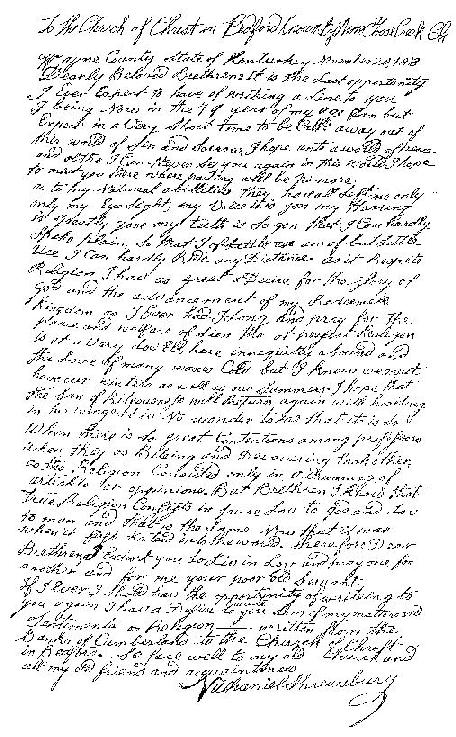 To The Church of Christ in Bedford County from Goose Creek
Wayne County State of Kentuckey November
Dearly Beloved Brethren It is the Last oppertunity
I Ever Expect to have of writing a Line to you
I being Now in the year of my age Am but
Expect in a Very Short time to be Calld away out of
this world of Sin and Sorrow, I hope unto a world of
and altho I Can Never See you again in this world I hope
to meet you there where parting will be No more
as to my Natural abilities they have all Left me only
only my Eyesight, my Voice is gon my Hearing
is partly gon my teeth is So gon that I Can Hardly
Speke plain, So that I of but Little
Use I Can hardly Ride any Distance as it Respects
Religion I had as great a Desire for the glory of
God and the advancement of my Redeemers
Kingdom as I Ever had I Long and pray for the
peace and welfare of Zion tho at present Religion
is at a Very Low Ebb here innequity abound and
the Love of many waxes Cold but I know we must
have our winters as well as our Summers I hope that
the Son of Ritousness will Return again with healing
in his wings It is No wonder that it is So
When there is So great Contentions among professors
when they are Biteing and Devouring Each other
as tho Religion Consisted only in a
articles or oppinions. But Brethren I find that
True Religion Consists in pure Love to God and Love
to man and that is the Same Now that it was
when it first into the world. Therefore Dear
Brethren I Exhort you to Live in Love and pray one for
another and for me your poor old
If I Ever Should have the oppertunity of writing to
you again I have a Desire to give you
on Religion written from the
Banks of Cumberland to the Church of Christ
in So fare well to my old Church and
all my old friends and aquaintence
Nathaniel